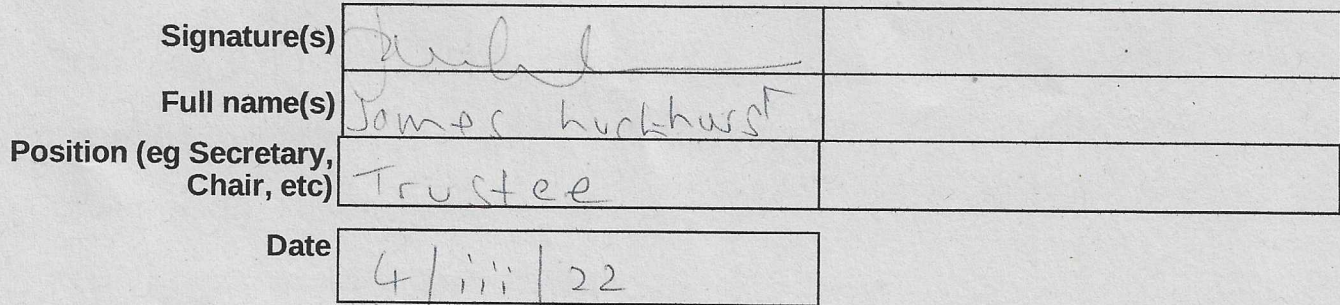 Signature(s)
Full name(s) James
Position (eg Secretary,
Chair, etc) Trustee
Date 4/iii/22